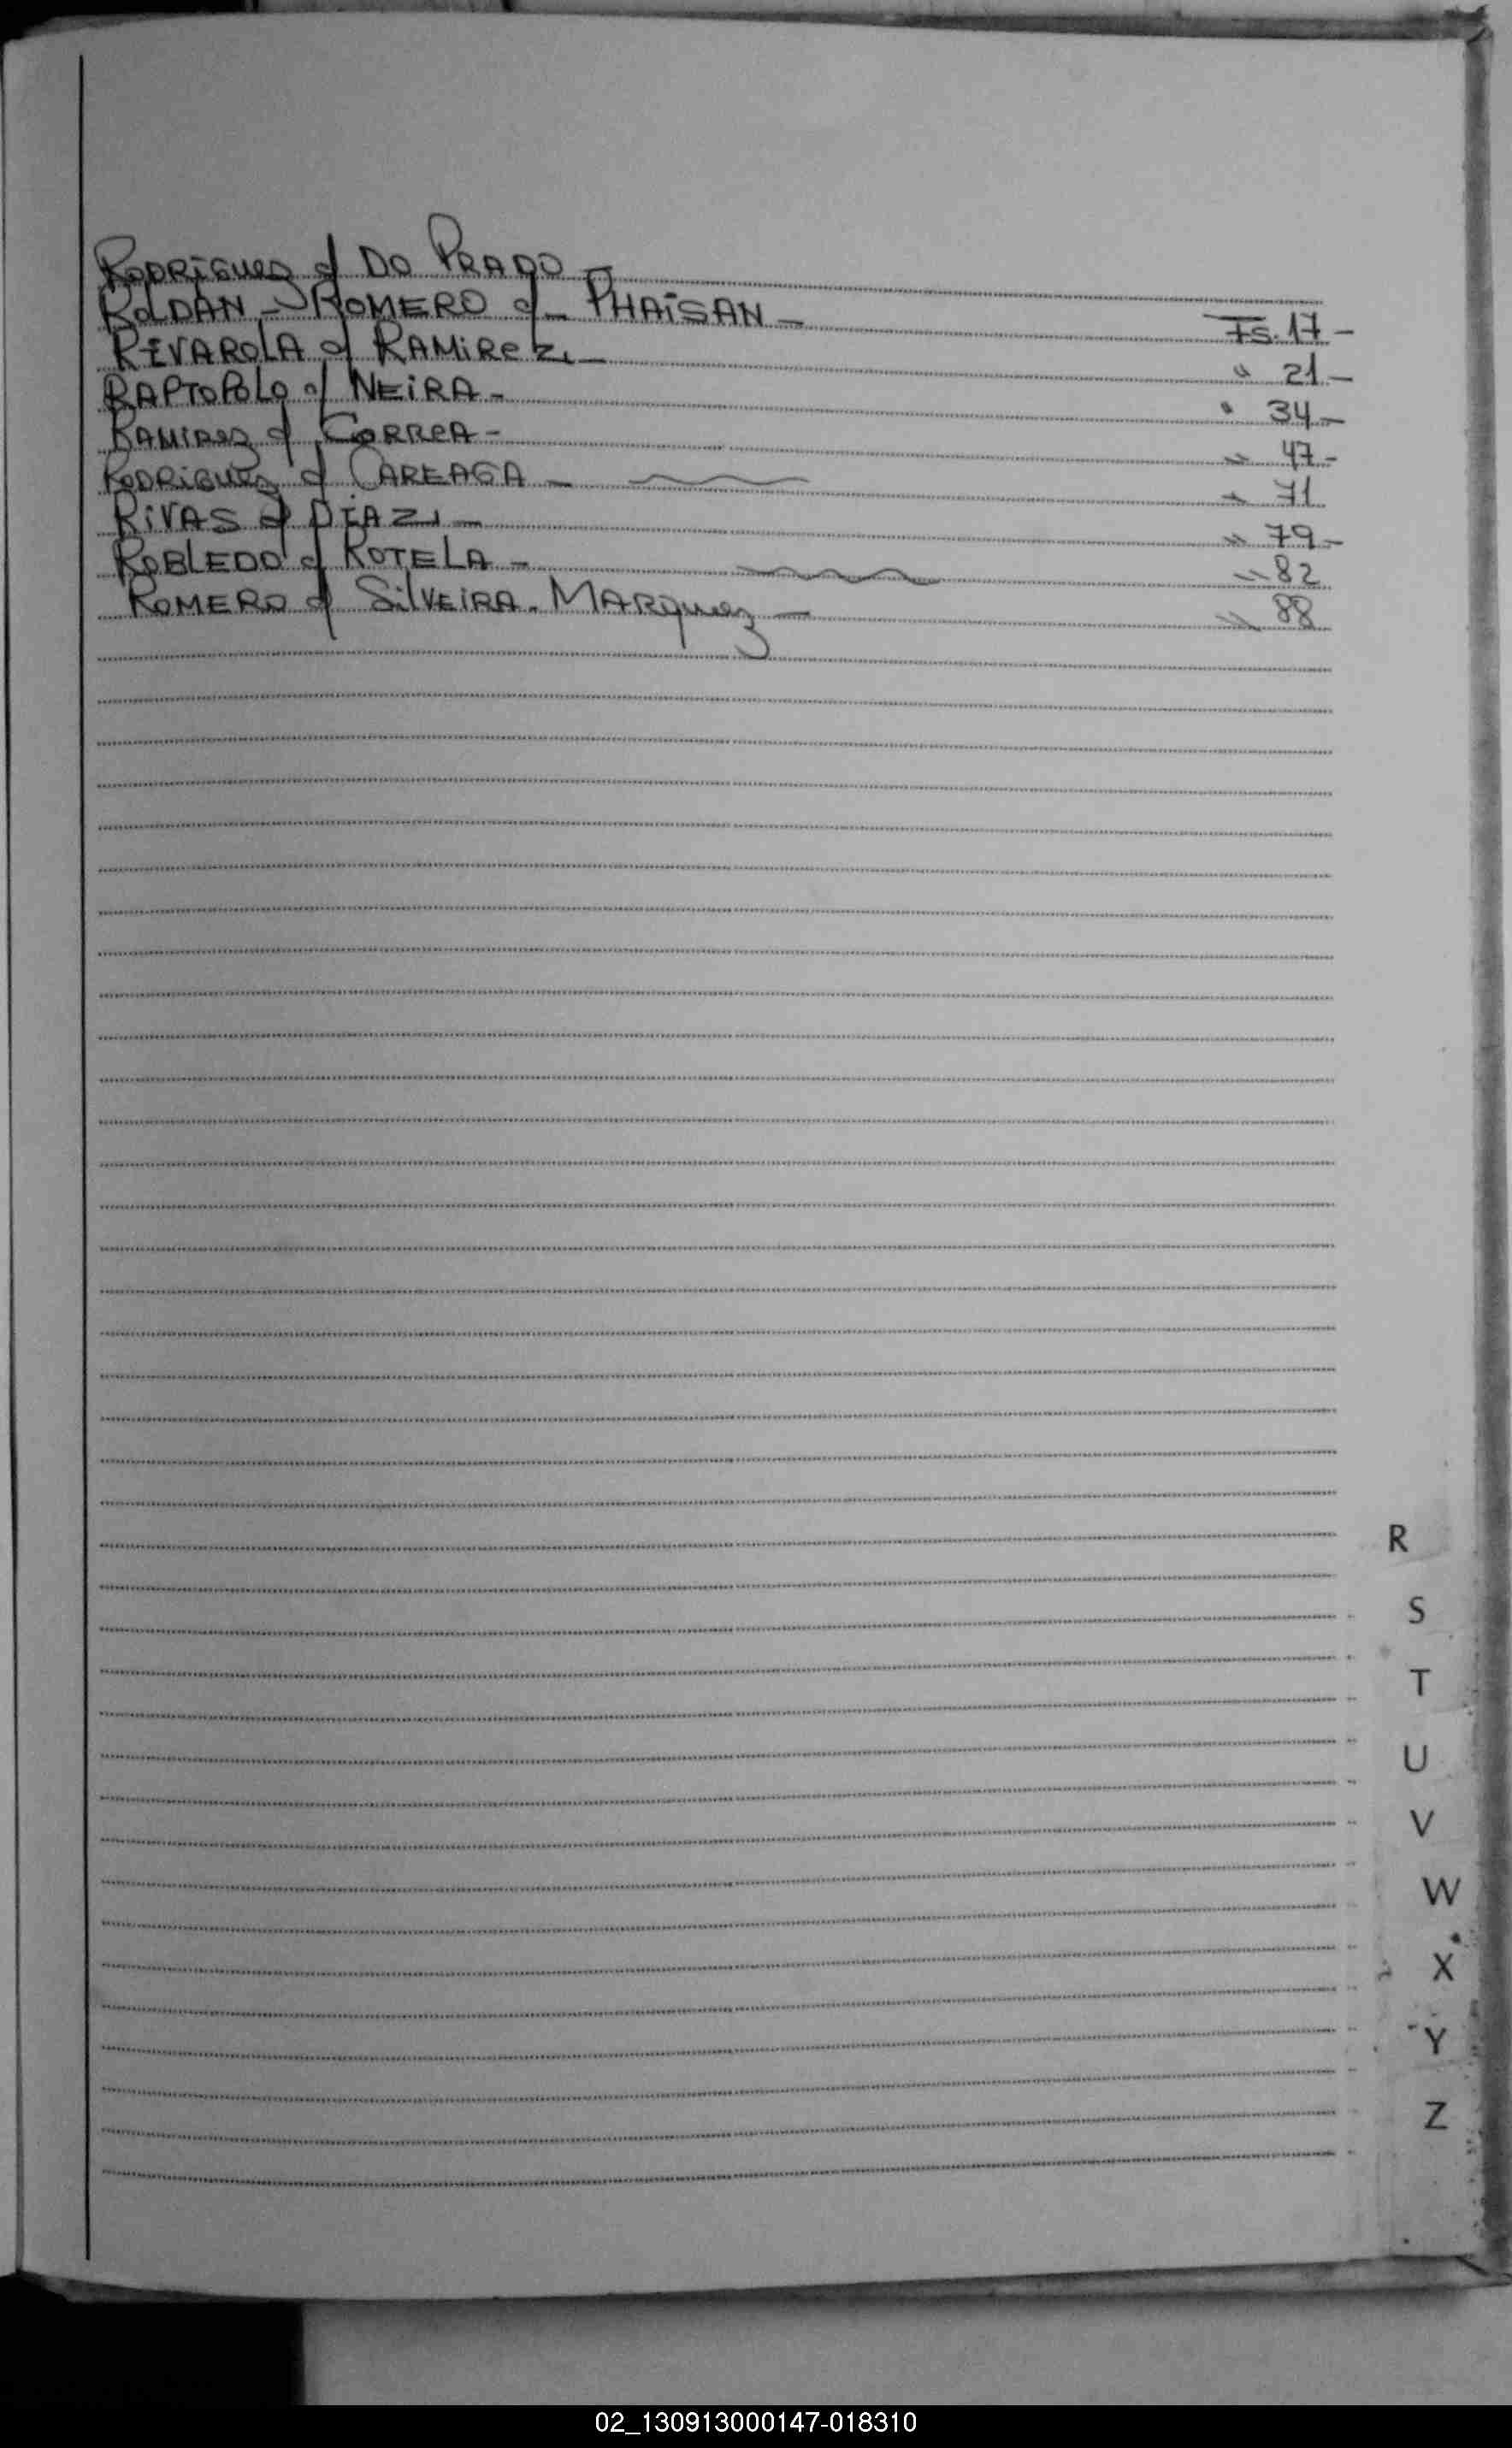 RODRIGUEZ c/ DO PRADO
ROLDAN - ROMERO c/ - PHAISAN - Fs. 17 -
RIVAROLA c/ RAMIREZ - " 21 -
RAPTOPOLO c/ NEIRA - " 34 -
RAMIREZ c/ CORREA - " 47 -
RODRIGUEZ c/ CAREAGA - " 71
RIVAS c/ DIAZ - " 79 -
ROBLEDO c/ ROTELA - " 82
ROMERO c/ SILVEIRA - MARQUEZ - " 88
R
S
T
U
V
W
X
Y
Z
02_130913000147-018310